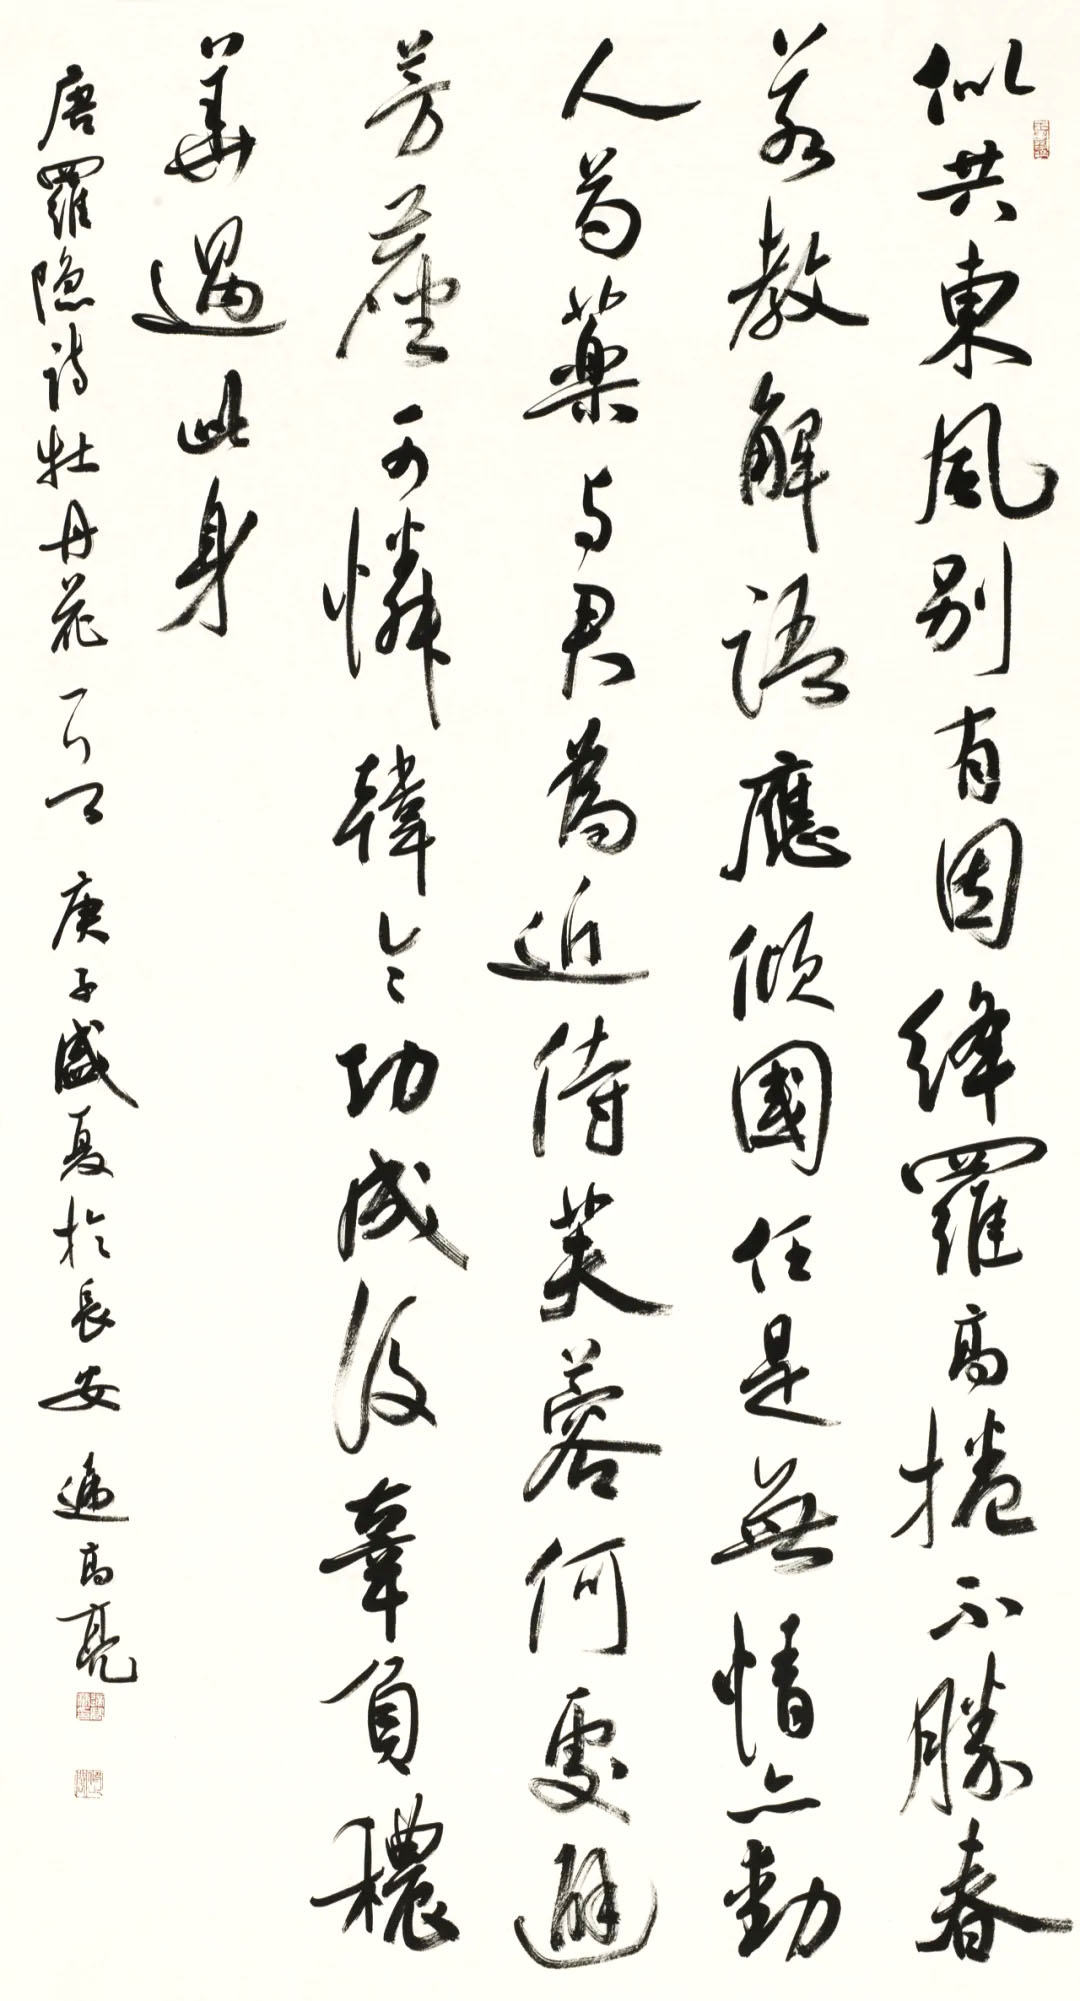 似共東風别有因絳羅高捲不勝春
若教解語應傾國任是無情亦動
人芍藥與君為近侍芙蓉何處避
芳塵可憐韓令功成後辜負穠
華過此身
唐羅隱詩牡丹花一首 庚子盛夏於長安 逦高亮